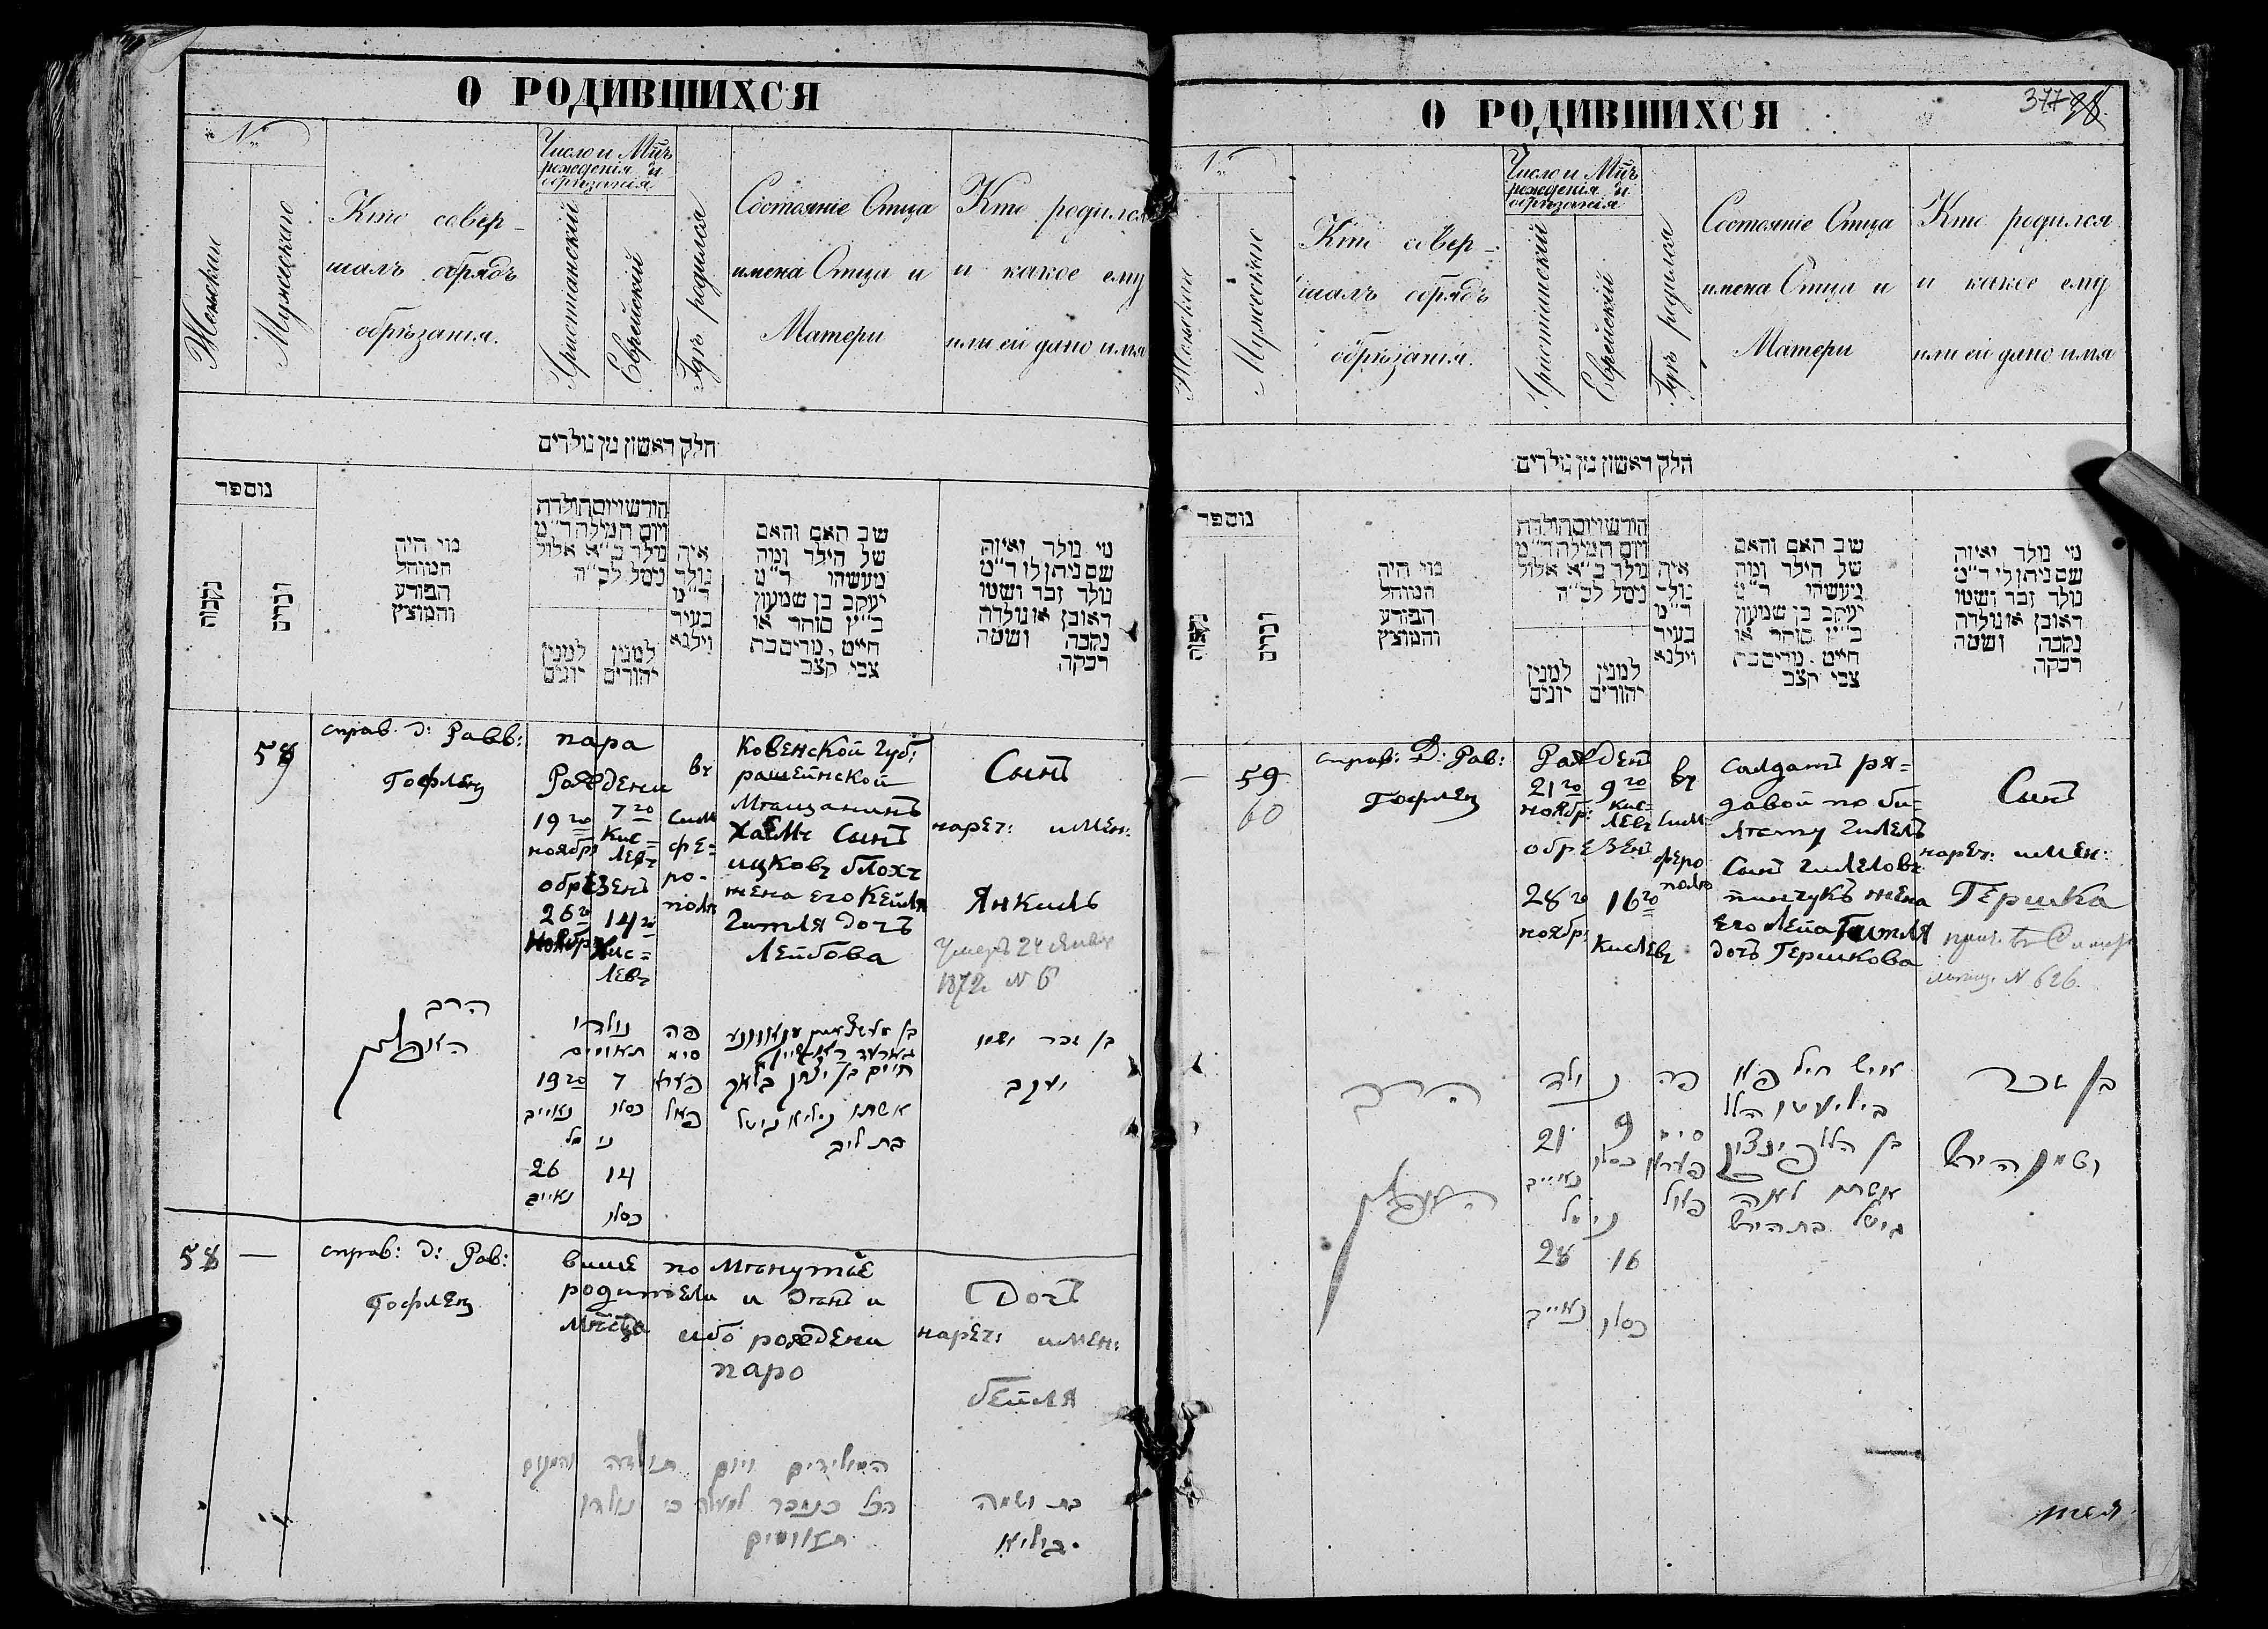 О РОДИВШИХСЯ
№
Женскаго
Мужескаго
Кто совер-
шалъ обрядъ
обрѣзанія.
Число и Мѣсяцъ
рожденія и
обрѣзанія
Христіанскій
Еврейскій
Гдѣ родился
Состояніе Отца
имена Отца и
Матери
Кто родился
и какое ему
или ей дано имя
חלק ראשון מן נולדים
מספר
נקבות
זכרים
מי היה
המוהל
הפורע
והמוצץ
חודש ויום הולדת
ויום המילה ד"מ
נולד כ"א אלול
נימל לכ"ה
למנין
יונים
למנין
יהודים
איה
נולד
ד"מ
בעיר
ווילנא
שם האב והאם
של הילד ומה
מעשהו ד"מ
יעקב בן שמעון
כ"ץ סוחר או
חייט. מרים בת
צבי קצב
מי נולד ואיזה
שם ניתן לו ד"מ
נולד זכר ושמו
ראובן או נולדה
נקבה ושמה
רבקה
справ. Д: Равв:
Гофленц
пара
Рождени
19го
ноября
7го
Кис=
левъ
обрезенъ
26го
Ноябр
14го
Кис=
левъ
въ
Сим
фе=
ро-
поля
Ковенской Губ:
рашейнской
Мещанинъ
Хаимъ Сынъ
ицковъ блохъ
жена его Кейля
Гитля дочь
Лейбова
Сынъ
нареч: имен:
Янкиль
Умеръ 24 Января
1872 N 6
הרב
נולדו
תאומים
19го 7
כסלו
נימל
26 14
כסלו
פה
סימ
פערא
פאל
חיים בן יצחק בלאך
בת ליב
בן זכר ושמו
יעקב
58 —
справ: Д: Рав:
Гофленц
више по Мянутае
родители и Этаж и
Место ибо рождени
паро
Дочь
нареч: имен:
бейля
המולידים ויום תולדה והמקום
הכל כנזכר למעלה כי נולדו
תאומים
בת ושמה
ביילא
О РОДИВШИХСЯ
377
№
Женскаго
Мужескаго
Кто совер-
шалъ обрядъ
обрѣзанія.
Число и Мѣсяцъ
рожденія и
обрѣзанія
Христіанскій
Еврейскій
Гдѣ родился
Состояніе Отца
имена Отца и
Матери
Кто родился
и какое ему
или ей дано имя
חלק ראשון מן נולדים
מספר
נקבות
זכרים
מי היה
המוהל
הפורע
והמוצץ
חודש ויום הולדת
ויום המילה ד"מ
נולד כ"א אלול
נימל לכ"ה
למנין
יונים
למנין
יהודים
איה
נולד
ד"מ
בעיר
ווילנא
שם האב והאם
של הילד ומה
מעשהו ד"מ
יעקב בן שמעון
כ"ץ סוחר או
חייט. מרים בת
צבי קצב
מי נולד ואיזה
שם ניתן לו ד"מ
נולד זכר ושמו
ראובן או נולדה
נקבה ושמה
רבקה
— 59
60
справ: Д: Рав:
Гофленц
Рожден
21го
ноябр:
9го
Кис=
левъ
обрезенъ
28го
ноябр:
16го
Кислевъ
въ
Сим=
феро
поля
Салдатъ ря=
давой по би=
летту Гилелъ
Сынъ Гилеловъ
пинчукъ жена
его Лейа Гитля
дочь Гершкова
Сынъ
нареч: имен:
Гершка
N 626.
הרב
נולד
21 9
כסלו
נימל
28 16
כסלו
פה
סימ
פערא
פאל
איש חיל פא
בן הלל פינצוק
אשתו לאה
גיטל בת הירש
בן זכר
ושמו הירש